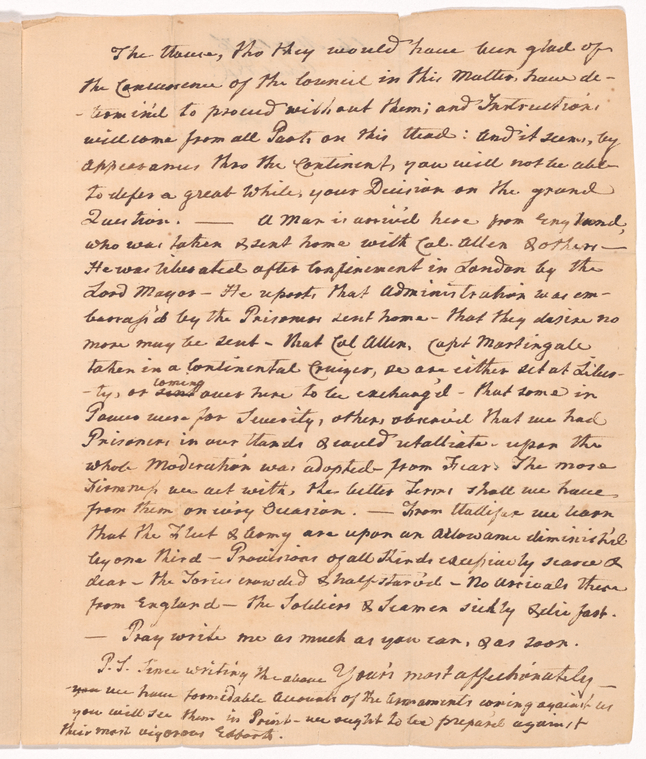 The House, tho they would have been glad of
the Concurrence of the Council in this Matter, have de-
-termin'd to proceed without them; and Instructions
will come from all Parts on this Head: And it seems, by
Appearances thro the Continent, you will not be able
to defer a great While, your Decision on the grand
Question. — A Man is arriv'd here from England,
who was taken & sent home with Col. Allen & others—
He was liberated after Confinement in London by the
Lord Mayor— He reports that Administration was em-
barrass'd by the Prisoners sent home— that they desire no
more may be sent— that Col Allen, Capt Martingale
taken in a Continental Cruizer, &c are either set at Liber-
-ty, or sent coming over here to be exchang'd— that some in
Power were for Severity, others observ'd that we had
Prisoners in our Hands & could retalliate— upon the
whole Moderation was adopted from Fear. The more
Firmness we act with, the better Terms shall we have
from them on every Occasion. — From Hallifax we learn
that the Fleet & Army are upon an Allowance diminish'd
by one third— Provisions of all Kinds excessively scarce &
dear— the Tories crowded & half starv'd— No arrivals there
from England— the Soldiers & Seamen sickly & die fast.
— Pray write me as much as you can, & as soon.
Yours most affectionately—
P.S. Since writing the above
you we have formidable Accounts of the Armaments coming against us
you will see them in Print— we ought to be prepar'd against
their most vigorous Efforts.